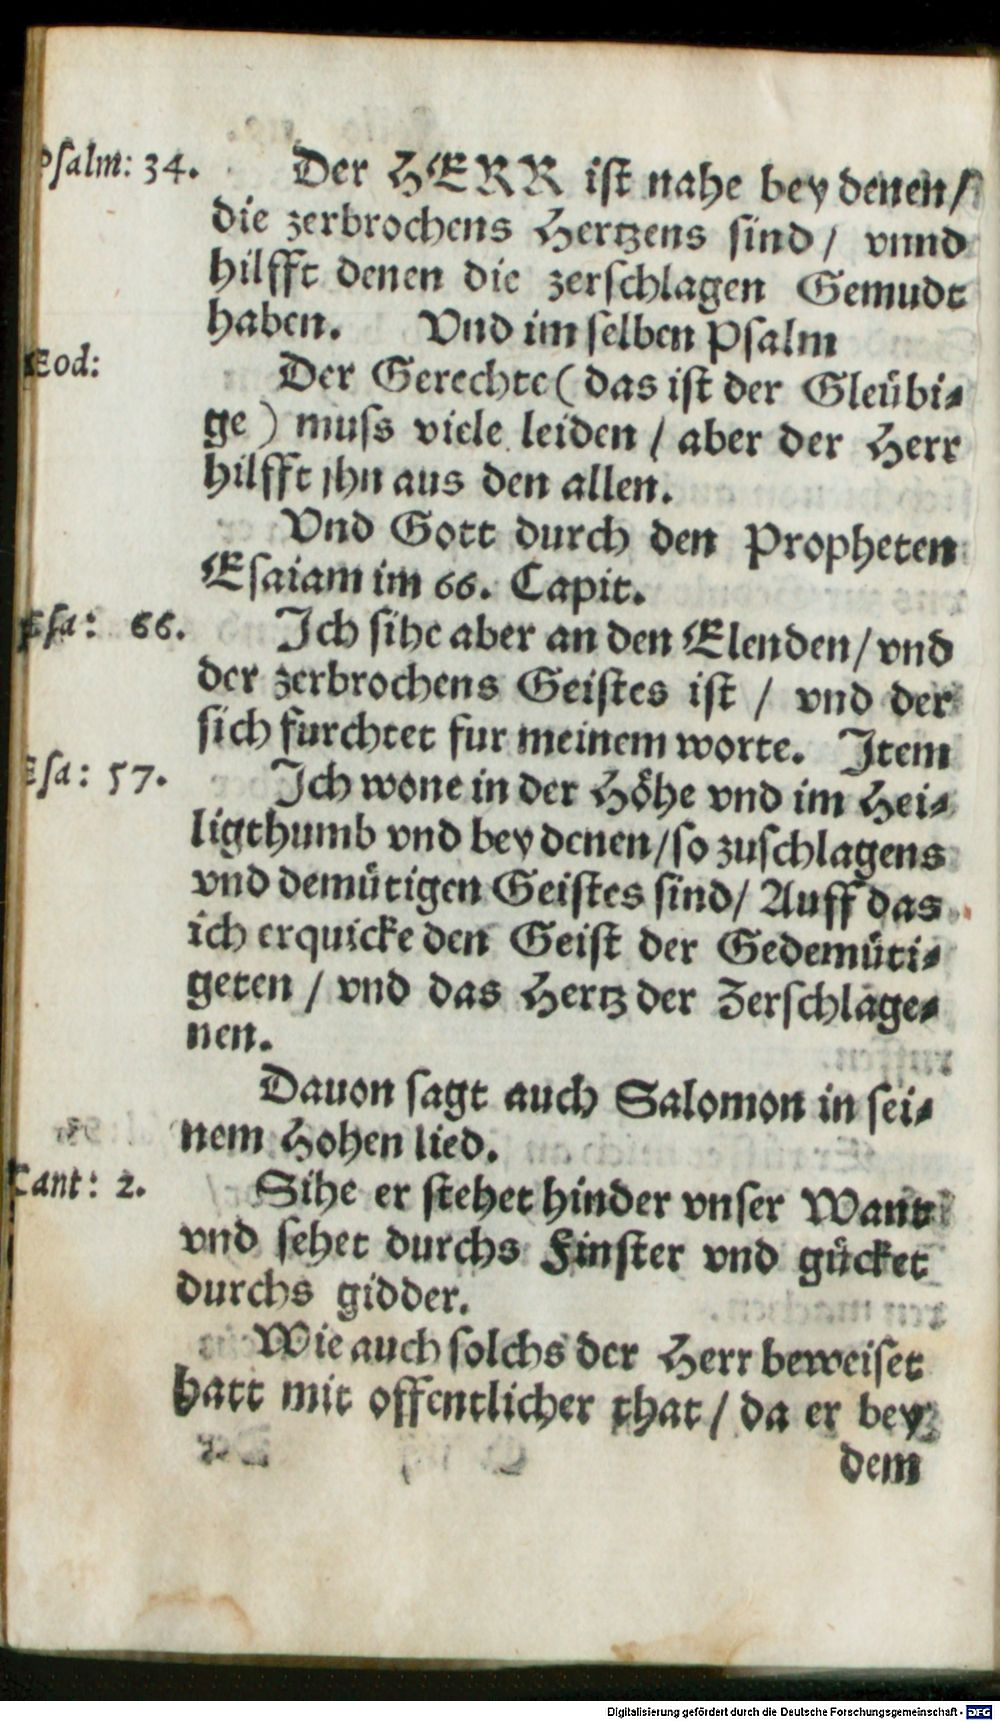 Psalm: 34. Der HERR ist nahe bey denen/
die zerbrochens Hertzens sind/ vnnd
hilfft denen die zerschlagen Gemudt
haben. Vnd im selben Psalm
Eod: Der Gerechte (das ist der Gleübi-
ge) muss viele leiden / aber der Herr
hilfft jhn aus den allen.
Vnd Gott durch den Propheten
Esaiam im 66. Capit.
Esa: 66. Ich sihe aber an den Elenden/ vnd
der zerbrochens Geistes ist / vnd der
sich furchtet fur meinem worte. Item
Esa: 57. Ich wone in der Höhe vnd im Hei-
ligthumb vnd bey denen/ so zuschlagens
vnd demütigen Geistes sind/ Auff das
ich erquicke den Geist der Gedemüti-
geten / vnd das Hertz der Zerschlage-
nen.
Dauon sagt auch Salomon in sei-
nem Hohen lied.
Cant: 2. Sihe er stehet hinder vnser Want
vnd sehet durchs Finster vnd gücket
durchs gidder.
Wie auch solchs der Herr beweiset
hatt mit offentlicher that / da er bey
dem
Digitalisierung gefördert durch die Deutsche Forschungsgemeinschaft - DFG